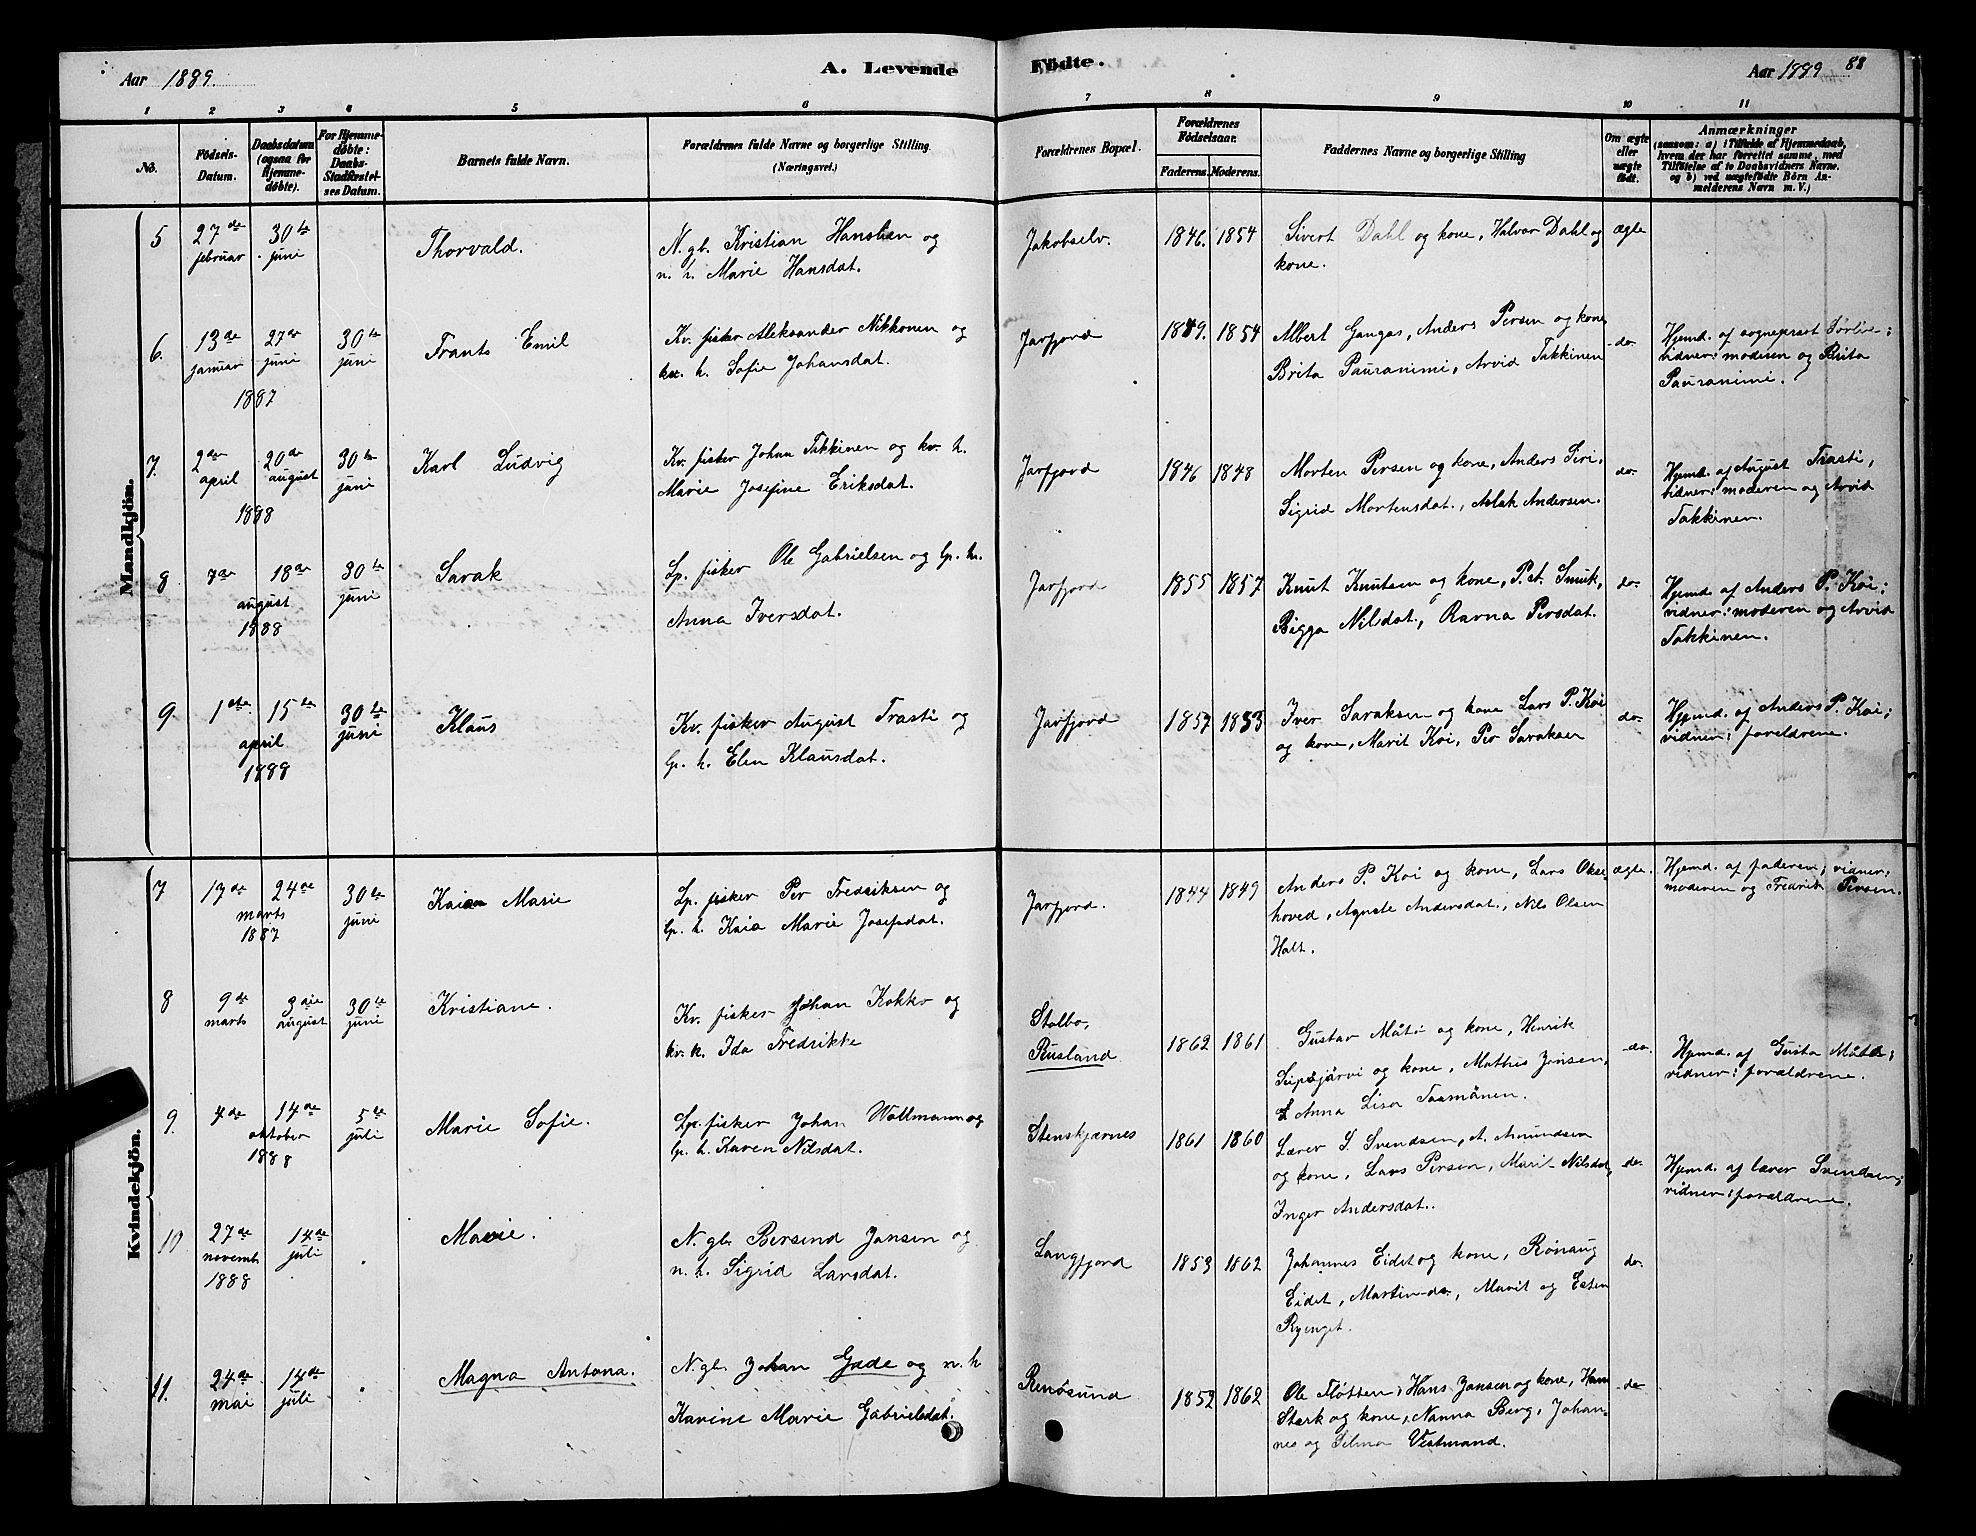 Aar 1889.
A. Levende
1 2 3 4 5 6
No.
Födsels-Datum.
Daabsdatum (ogsaa for Hjemme-døbte).
For Hjemme-døbte: Daabs-Stadfæstel-ses Datum.
Barnets fulde Navn.
Forældrenes fulde Navne og borgerlige Stilling.
(Næringsvei.)
Fødte.
Aar 1889
88
7 8 9 10 11
Forældrenes Bopæl.
Forældrenes Födselsaar.
Faderens. Moderens.
Faddernes Navne og borgerlige Stilling
Om ægte eller uægte født.
Anmærkninger
(saasom: a) i Tilfælde af Hjemmedaab,
hvem der har forrettet samme, med
Tilføielse af to Daabsvidners Navne,
og b) ved uægtefødte Börn An-
melderens Navn m. V.)
Mandkjön.
5 27de februar 30te juni Thorvald. N. gb. Kristian Hansben og
n. h. Marie Hansdat.
Jakobselv. 1846. 1854 Sivert Dahl og kone, Halvar Dahl og ægte
kone.
6. 13de januar 27de juni 30te juni Frants Emil Kv. fisker Aleksander Nikkonen og
1887 kv. h. Sofie Johansdat.
Jarfjord 1849. 1854 Albert Gangas, Anders Persen og kone, do.
Brita Pauranimi, Arvid Takkinen
Hjemd. af sogneprest
vidner: moderen og Brita
Pauranimi.
7. 2den april 20de august 30te juni Karl Ludvig Kv. fisker Johan Takkinen og kv. h.
1888 Marie Josefine Eriksdat.
Jarfjord 1846 1848 Morten Persen og kone, Anders Siri, do.
Sigrid Mortensdat., Aslak Andersen.
Hjemd. af August Trasti,
vidner: moderen og Arvid
Takkinen.
8 7de 18de 30te juni Sarak Lp. fisker Ole Gabrielsen og lp. h.
august
1888 Anna Iversdat.
Jarfjord 1855 1857 Knut Knutsen og kone, P. A. Smuk, do.
Bigga Nilsdat, Ravna Persdat.
Hjemd. af Anders P. Koi;
vidner: moderen og Arvid
Takkinen.
9. 1ste 15de 30te juni Klaus Kv. fisker August Trasti og
april
1888 lp. h. Elen Klausdat.
Jarfjord 1857 1853 Iver Saraksen og kone Lars P. Koi do.
og kone, Marit Koi, Per Saraksen
Hjemd. af Anders P. Koi;
vidner: foreldrene.
Kvindekjön.
7 13de 24de 30te juni Kaia Marie Lp. fisker Per Fredriksen og
marts
1887 lp. h. Kaia Marie Josefsdat.
Jarfjord. 1844 1849 Anders P. Koi og kone, Lars Okse- ægte.
hoved, Agnete Andersdat., Nils Olsen
Halt.
Hjemd. af faderen; vidner:
moderen og Fredrik Persen.
8 9de marts 3die august 30te juni Kristiane. Kv. fisker Johan Kokko og
kv. h. Ida Fredrikke
Stolbo,
Rusland 1862 1861 Gustav Måtö og kone, Henrik do.
Siipajärvi og kone, Mathis Jonsen,
Anna Lisa Taamänen.
Hjemd. af Gusta Måtö;
vidner: forældrene.
9. 4de 14de 5te juli Marie Sofie. Lp. fisker Johan Wollmann og
oktober
1888 lp. h. Karen Nilsdat.
Stenskjærnes 1861 1860 Lærer S. Svendsen, A. Amundsen do.
og kone, Lars Persen, Marit Nilsdat,
Inger Andersdat.
Hjemd. af lærer Svendsen;
vidner: forældrene.
10 27de novemb. 14de juli Marie. N. gb. Bersend Jansen og
1888 n. h. Sigrid Larsdat.
Langfjord 1853 1862 Johannes Eidet og kone, Rønaug do.
Eidet, Martin do., Marit og Esten
Ryenget.
11. 24de mai 14de juli Magna Antona. N. gb. Johan Gade og n. h
Karine Marie Gabrielsdat.
Renösund 1852 1862 Ole Fløtten, Hans Jansen og kone, Hans do
Sterk og kone, Nanna Berg, Johan-
nes og Selma Vestmand.